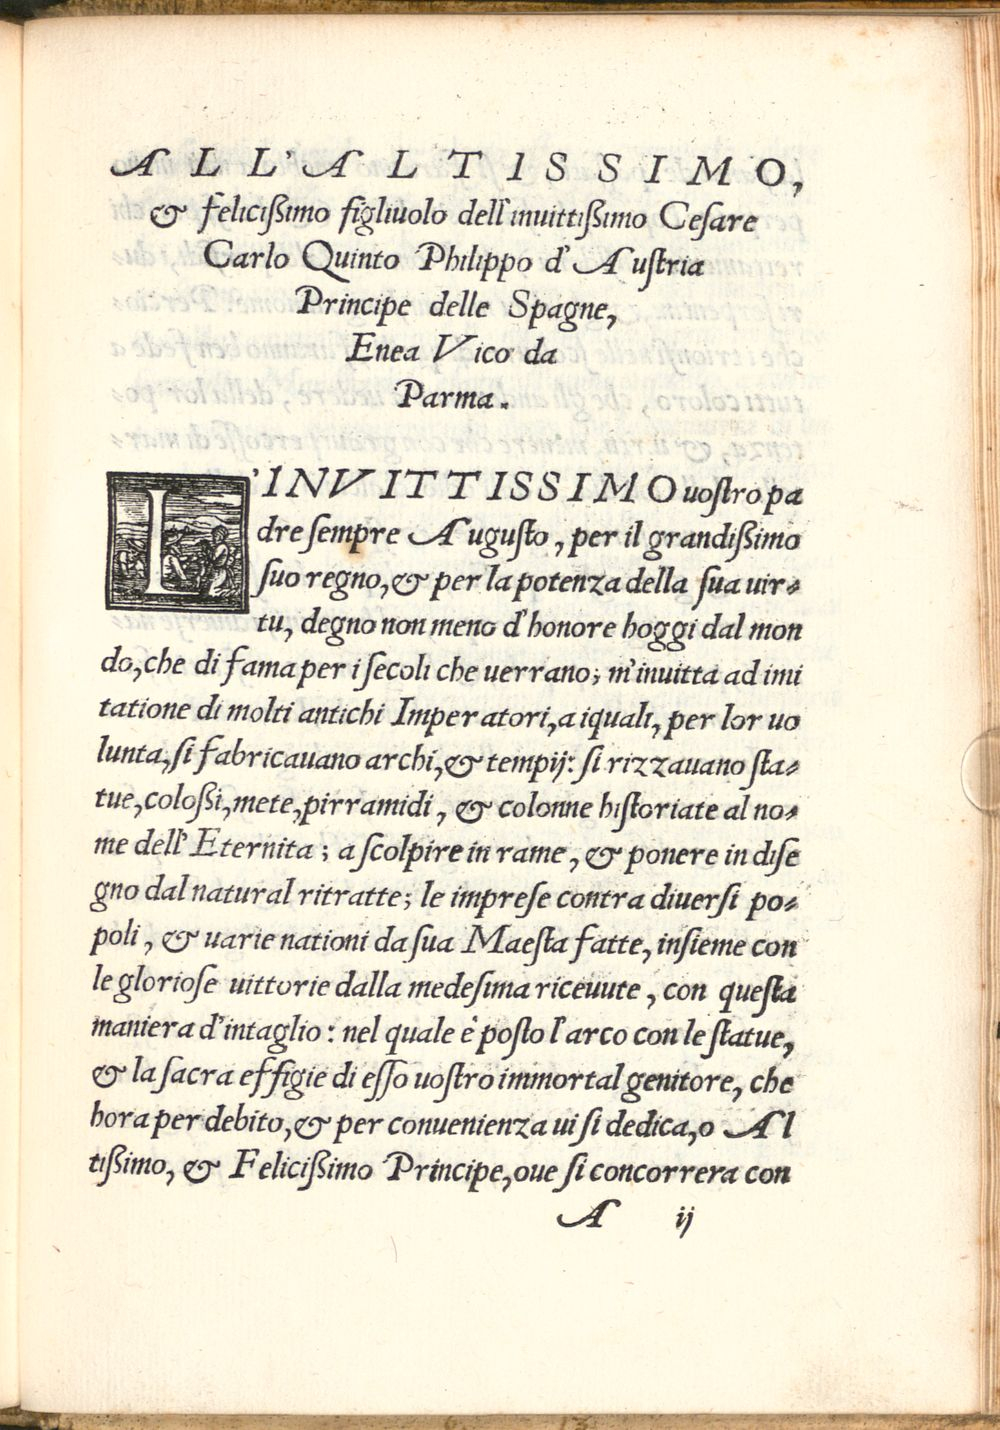 ALL'ALTISSIMO,
& felicißimo figliuolo dell'inuittißimo Ceſare
Carlo Quinto Philippo d'Auſtria
Principe delle Spagne,
Enea Vico da
Parma.
L'INVITTISSIMO uoſtro pa
dre ſempre Auguſto, per il grandißimo
ſuo regno, & per la potenza della ſua uir-
tu, degno non meno d'honore hoggi dal mon
do, che di fama per i ſecoli che uerrano; m'inuitta ad imi
tatione di molti antichi Imperatori, a iquali, per lor uo
lunta, ſi fabricauano archi, & tempij: ſi rizzauano ſta-
tue, coloßi, mete, pirramidi, & colonne hiſtoriate al no-
me dell'Eternita; a ſcolpire in rame, & ponere in diſe
gno dal natural ritratte; le impreſe contra diuerſi po-
poli, & uarie nationi da ſua Maeſta fatte, inſieme con
le glorioſe uittorie dalla medeſima riceuute, con queſta
maniera d'intaglio: nel quale è poſto l'arco con le ſtatue,
& la ſacra effigie di eſſo uoſtro immortal genitore, che
hora per debito, & per conuenienza ui ſi dedica, o Al
tißimo, & Felicißimo Principe, oue ſi concorrera con
A ij